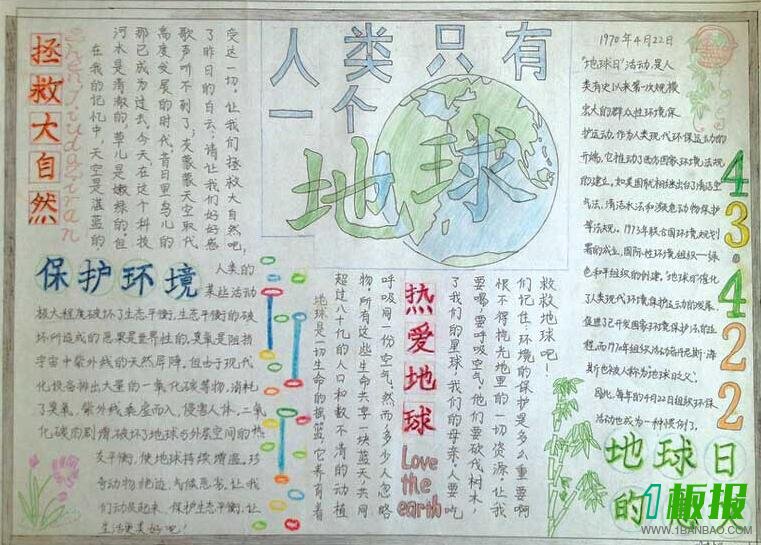 人类只有
一个
地球
拯救大自然
Zheng Jiu da zi ran
在我的记忆中，天空是湛蓝的
河水是清澈的，草儿是嫩绿的。但
那已成为过去。今天，在这个科技
高度发展的时代，昔日里鸟儿的
歌声听不到了；灰蒙蒙天空取代
了昨日的白云；请让我们好好感
受这一切，让我们拯救大自然吧，
保护环境
人类的
某些活动
极大程度破坏了生态平衡，生态平衡的破
坏所造成的恶果是世界性的，臭氧是阻挡
宇宙中紫外线的天然屏障，但由于现代
化设备排出大量的一氧化碳等物，消耗
了臭氧，紫外线乘虚而入，侵害人体，二氧
化碳的剧增，破坏了地球与外层空间的热
灰平衡，使地球持续增温，珍
奇动物绝迹，气候恶劣，让我
们动员起来，保护生态平衡，让
生活更美好吧！
地球是一切生命的摇篮，它养育着
超过八十亿的人口和数不清的动植
物，所有这些生命共享一块蓝天，共同
呼吸同一份空气，然而，多少人忽略
热爱地球
Love
the
earth
了我们的星球，我们的母亲，人要吃
要喝，要呼吸空气，他们要砍伐树木，
恨不得挖光地里的一切资源，让我
们记住：环境的保护是多么重要啊
救救地球吧！
1970年4月22日
"地球日"活动，是人
类有史以来第一次规模
宏大的群众性环境保
护运动，作为人类现代环保运动的
开端，它推动了西方国家环境法规
的建立，如美国就相继出台了清洁空
气法，清洁水法和濒危动物保护
等法规，1973年联合国环境规划
署的成立，国际性环境组织——绿
色和平组织的创建，"地球日"催化
了人类现代环境保护运动的发展，
促进了已开发国家环境保护法的进
程，而1970年组织活动者丹尼斯·海
斯也被人称为"地球日之父"。
因此，每年的4月22日组织环保
活动也成为一种惯例了。
43·422
地球日
的
1板报
WWW.1BANBAO.COM